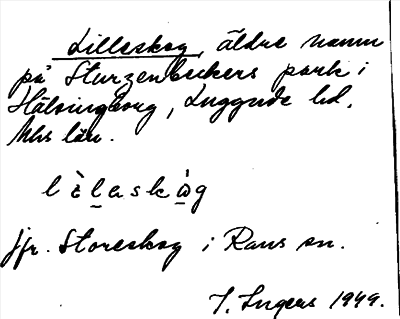 Lilleskog, äldre namn
på Sturzenbeckers park i
Hälsingborg, Luggude hd,
Mhs län.
lèlaskὼg
jfr. Storeskog i Raus sn.
I. Ingers 1949.